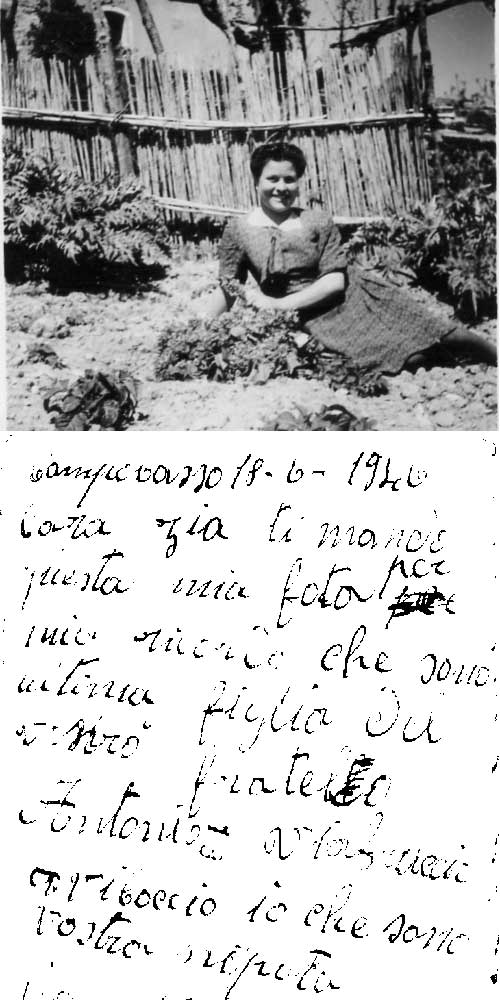 Campobasso 18-6-1946
Cara zia ti mando
questa mia foto per
mio ricordo che sono
ultima figlia del
vostro
fratello
Antonio v'abbraccio
vi bacio io che sono
vostra neputa